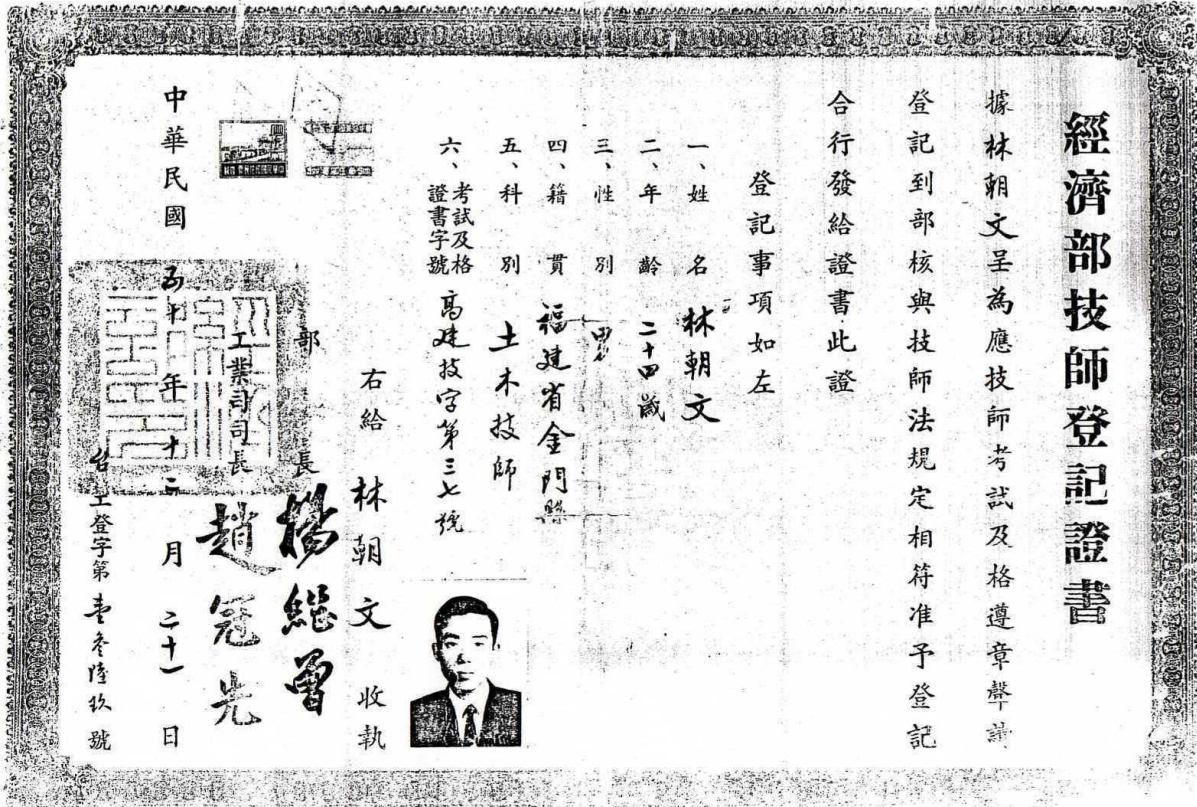 經濟部技師登記證書
據林朝文呈為應技師考試及格遵章聲請
登記到部核與技師法規定相符准予登記
合行發給證書此證
登記事項如左
一、姓名 林朝文
二、年齡 二十四歲
三、性別 男
四、籍貫 福建省金門縣
五、科別 土木技師
六、考試及格證書字號 高建技字第三七號
右給 林朝文 收執
部長 楊繼曾
工業司司長 趙冠先
中華民國 五十年 十二月 二十一日
台工登字第壹叁陸玖號